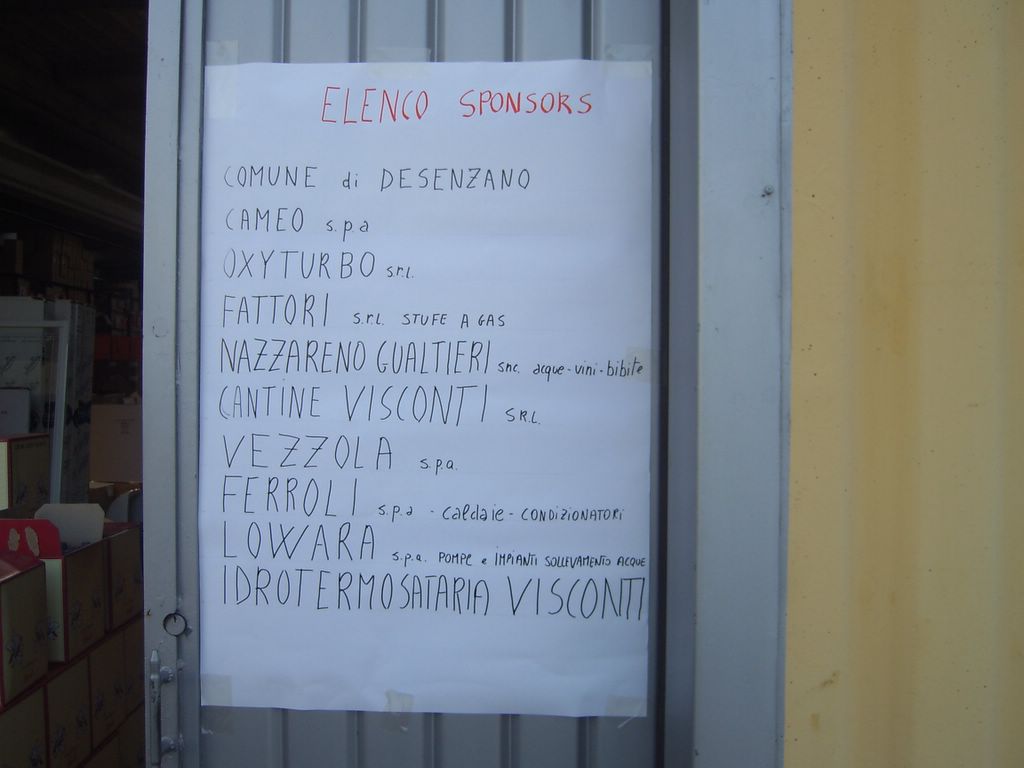 ELENCO SPONSORS
COMUNE di DESENZANO
CAMEO s.p.a
OXYTURBO s.r.l.
FATTORI s.r.l. STUFE A GAS
NAZZARENO GUALTIERI snc. acque-vini-bibite
CANTINE VISCONTI S.R.L.
VEZZOLA s.p.a.
FERROLI s.p.a - caldaie - CONDIZIONATORI
LOWARA s.p.a. POMPE e IMPIANTI SOLLEVAMENTO ACQUE
IDROTERMOSATARIA VISCONTI